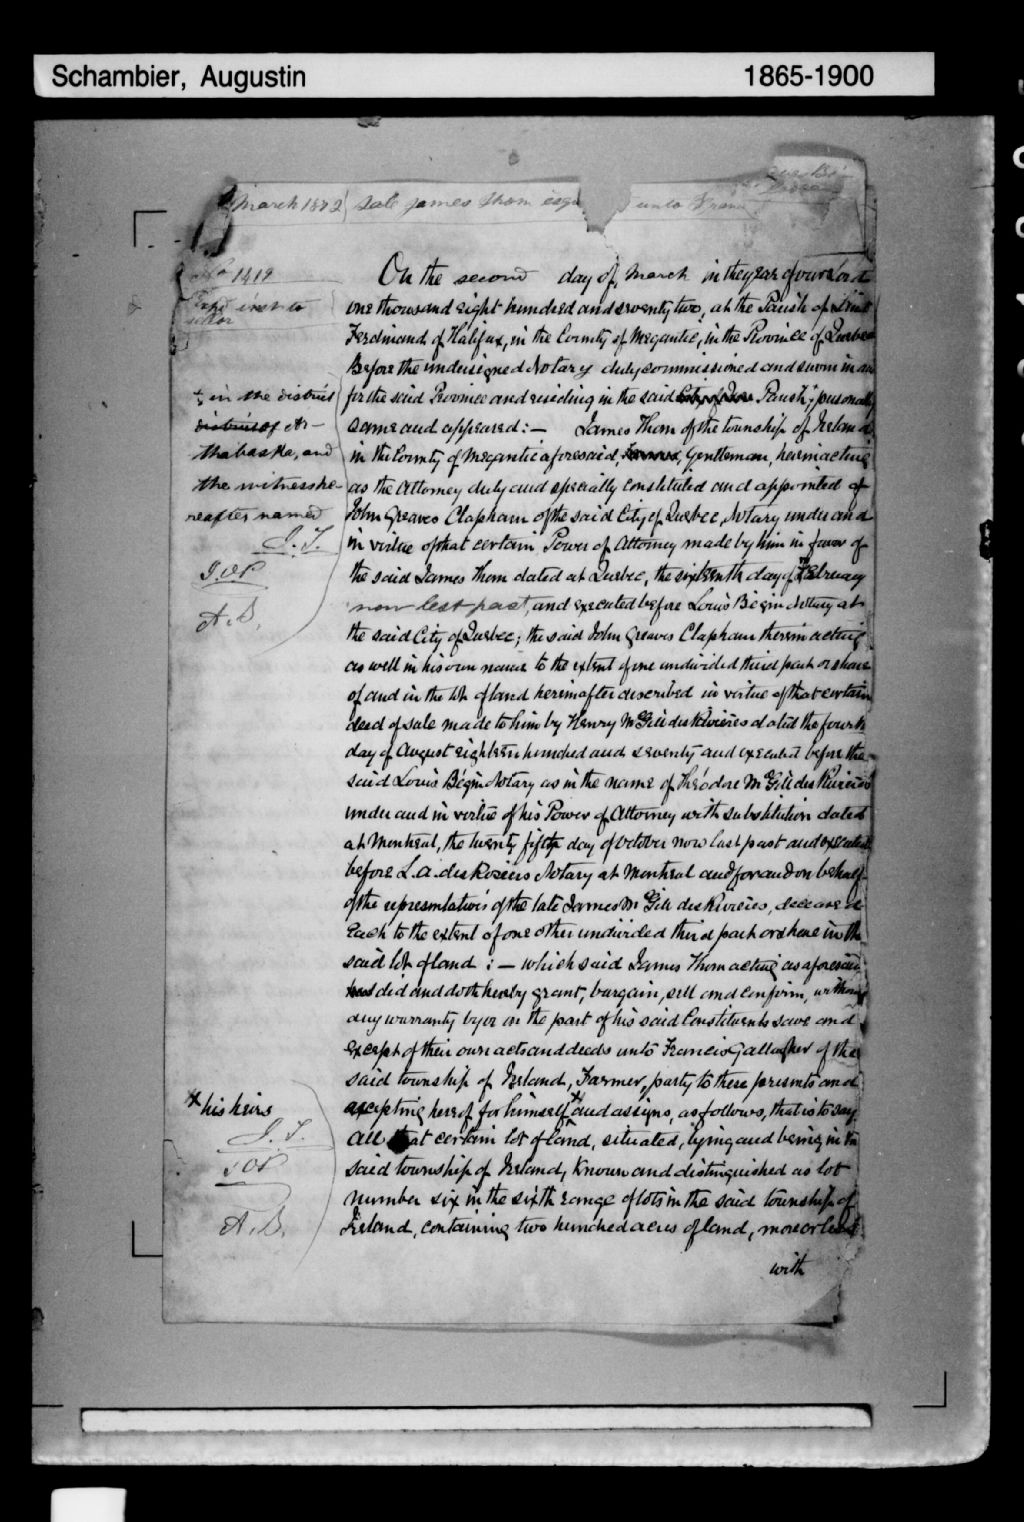 Schambier, Augustin 1865-1900
March 1872 Sale James Thom esq unto
No 1419
On the second day of March in the year of our Lord
one thousand eight hundred and seventy two, at the Parish of Saint
Ferdinand of Halifax, in the County of Megantic, in the Province of Quebec
Before the undersigned Notary duly commissioned and sworn in and
for the said Province and residing in the said City of Parish, personally
came and appeared: — James Thom of the township of Ireland
in the County of Megantic aforesaid, Gentleman, herein acting
as the Attorney duly and specially constituted and appointed of
John Greaves Clapham of the said City of Quebec, Notary under and
in virtue of that certain Power of Attorney made by him in favor of
the said James Thom dated at Quebec, the sixteenth day of February
now last past, and executed before Louis Bégin Notary at
the said City of Quebec; the said John Greaves Clapham therein acting
as well in his own name to the extent of one undivided third part or share
of and in the lot of land hereinafter described in virtue of that certain
deed of sale made to him by Henry McGill des Rivières dated the fourth
day of August eighteen hundred and seventy and executed before the
said Louis Bégin Notary as in the name of Théodore McGill des Rivières
under and in virtue of his Power of Attorney with substitution dated
at Montreal, the twenty fifth day of October now last past and executed
before L. A. des Rosiers Notary at Montreal and for and on behalf
of the representatives of the late James McGill des Rivières, deceased
Each to the extent of one other undivided third part or share in the
said lot of land : — which said James Thom acting as aforesaid
did and doth hereby grant, bargain, sell and confirm, without
any warranty by or on the part of his said Constituents save and
except of their own acts and deeds unto Francis Gallagher of the
said township of Ireland, Farmer, party to these presents and
accepting hereof for himself x and assigns, as follows, that is to say
All that certain lot of land, situated, lying and being in the
said township of Ireland, known and distinguished as lot
number six in the sixth range of lots in the said township of
Ireland, containing two hundred acres of land, more or less
with
in the district
district of Ar-
thabaska, and
the witness he-
reafter named
J. T.
A. B.
x his heirs
J. T.
A. B.